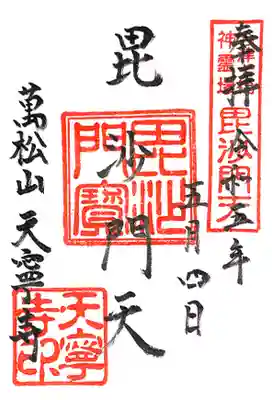 奉拝 令和五年
五月四日
毘沙門天
萬松山 天寧寺
毘沙門天
毘沙門寶
天寧寺印